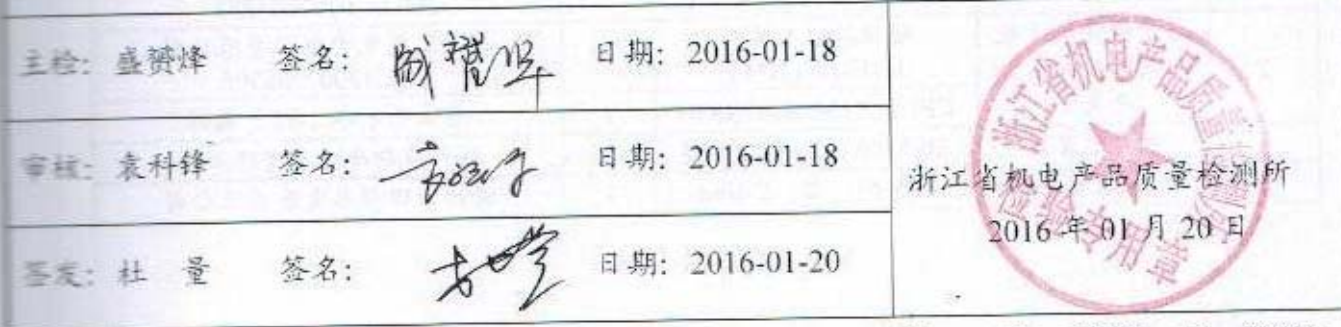 主检: 盛赟烽 签名: 盛赟烽 日期: 2016-01-18
审核: 袁科锋 签名: 日期: 2016-01-18
签发: 杜 量 签名: 日期: 2016-01-20
浙江省机电产品质量检测所
2016 年 01 月 20 日
浙江省机电产品质量检测所
检验专用章